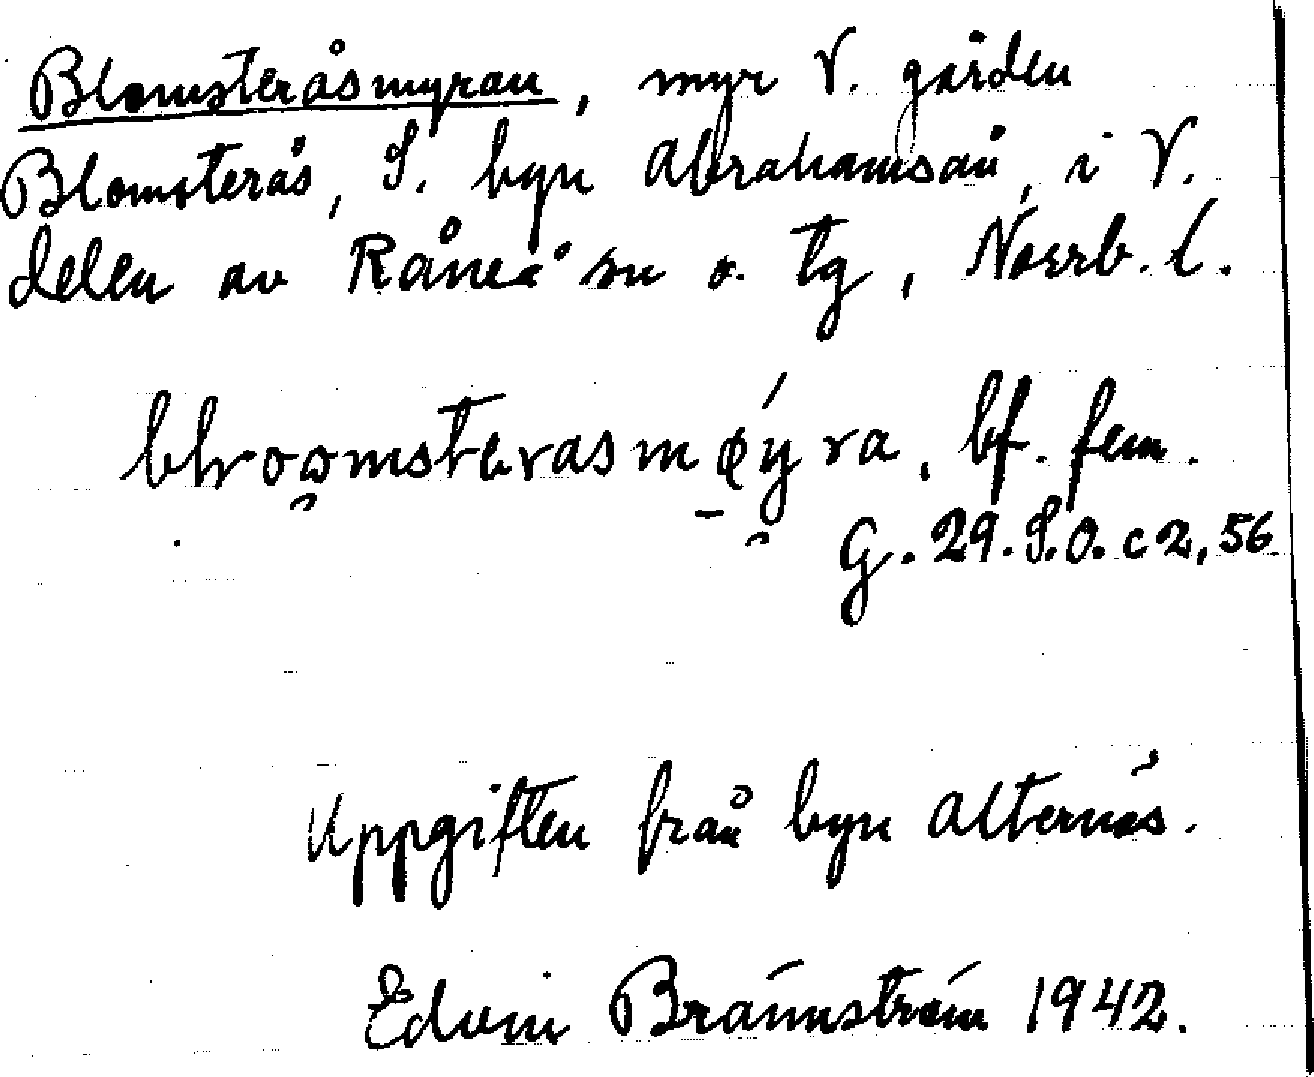 Blomsteråsmyran, myr V. gården
Blomsterås, S. byn Abrahamsån, i V.
delen av Råneå sn o. tg, Norrb. l.
bf. fem.
G. 29. S.O. c 2, 56
Uppgiften från byn Alternäs.
Edvin Brännström 1942.